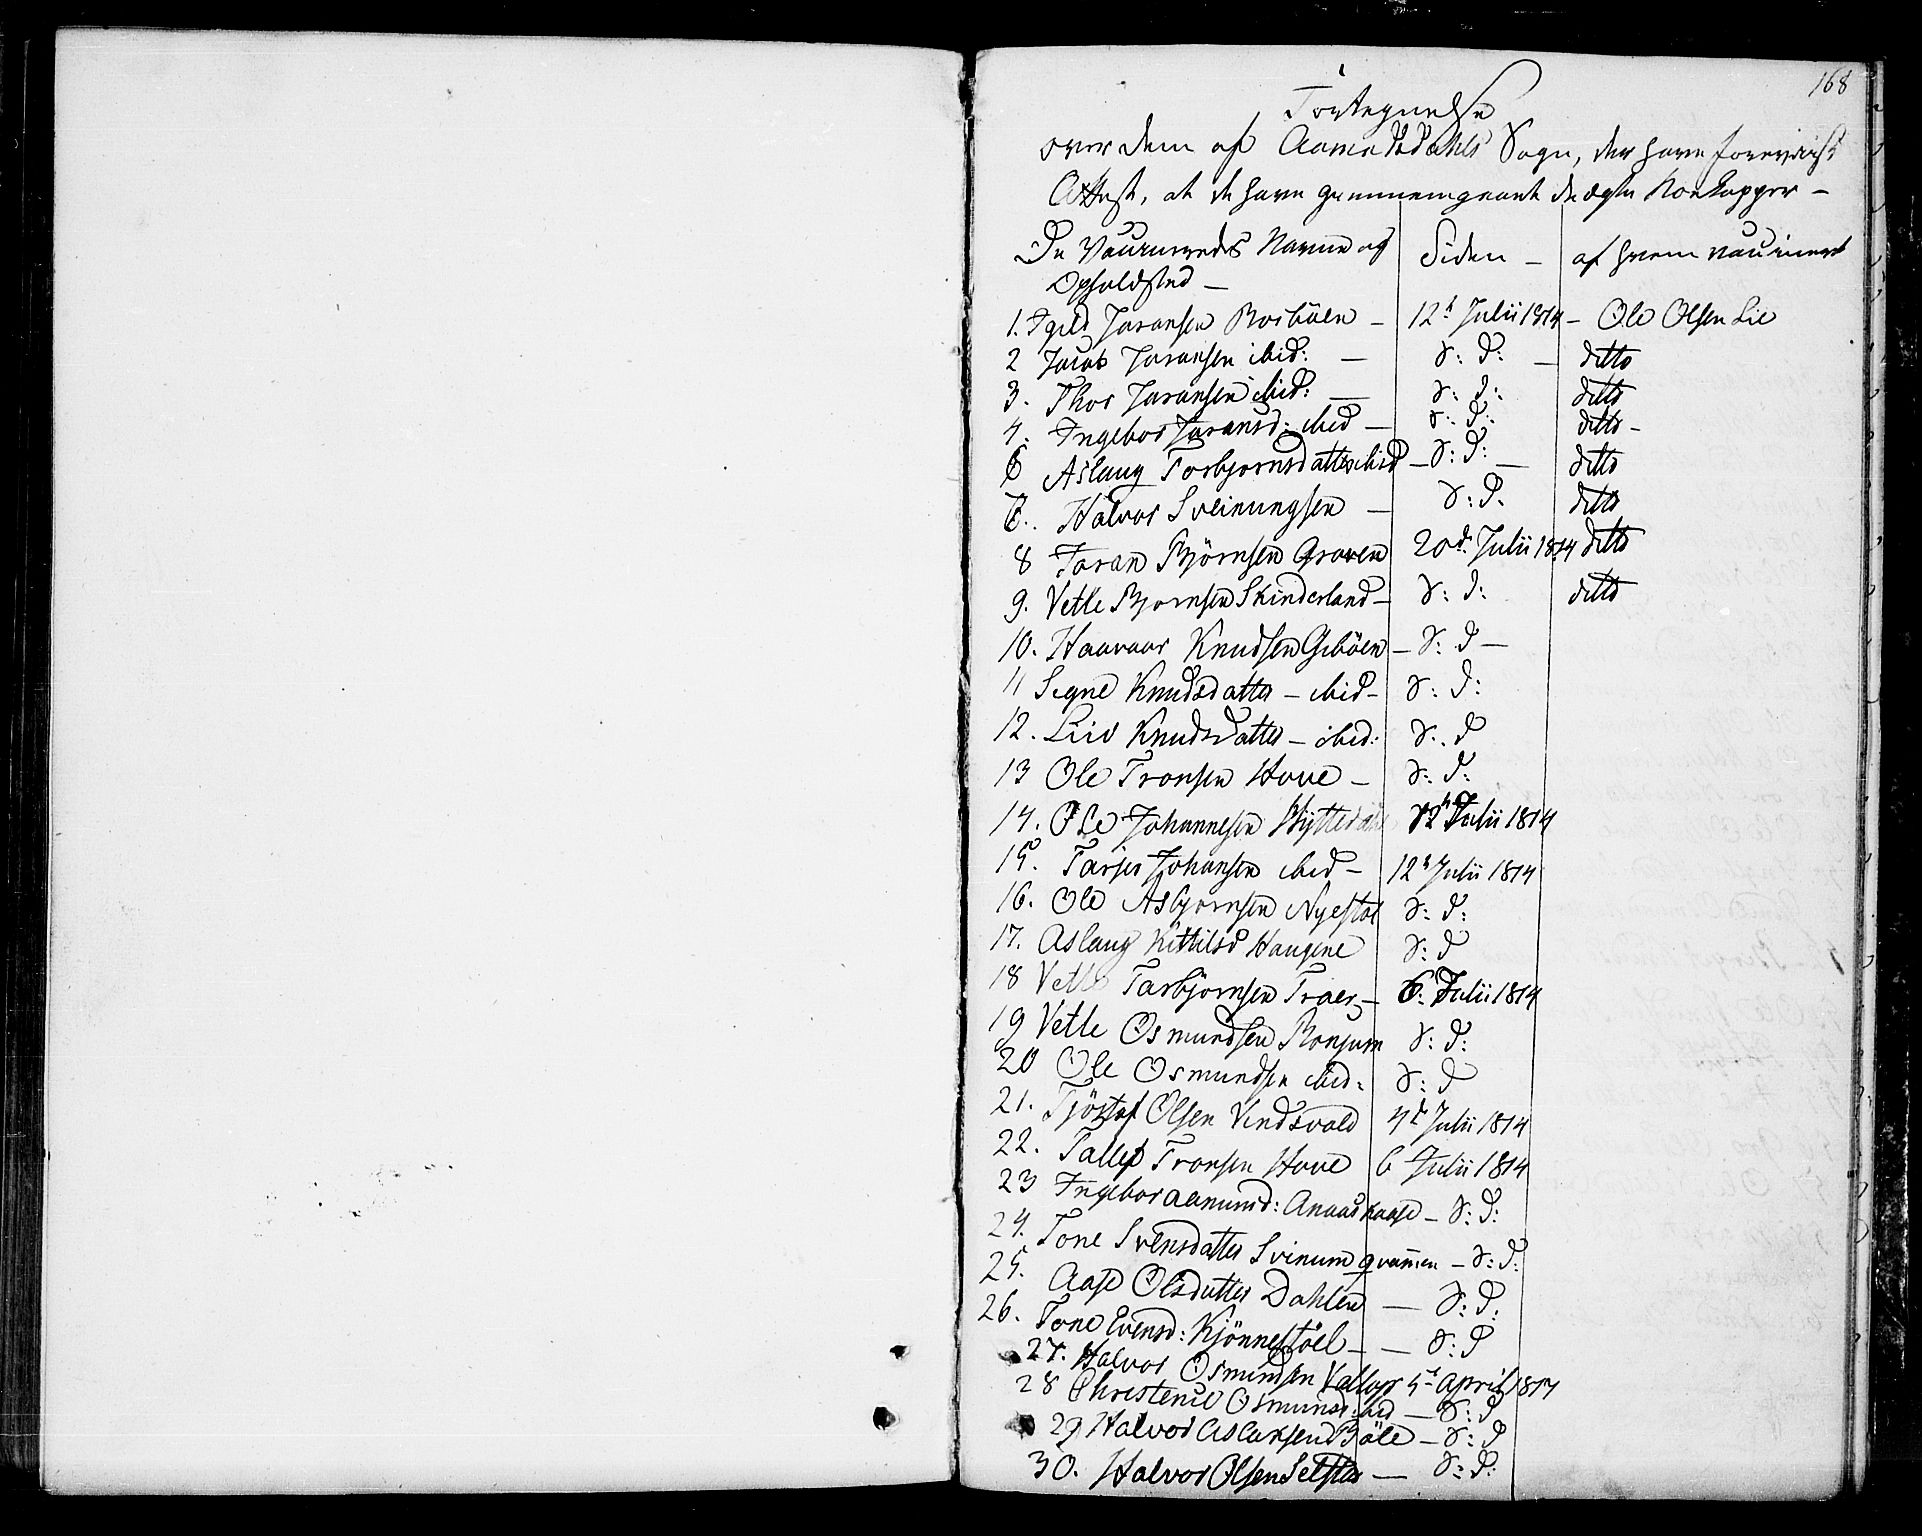 168
Fortegnelse
over dem af Aamotsdahls Sogn, der have foreviist
Attest, at de have gjennemgaaet de ægte Koekopper –
De Vaccineredes Navne og Opholdsted – Siden – af hvem vaccineret
1. Jgild Joransen Rosböen – 12te Julii 1814 – Ole Olsen Lie
2 Jacob Joransen ibid: – d: d: – ditto
3. Thor Joransen ibid: – d: d: ditto
4. Ingebor Joransd: ibid – d: d: ditto –
6 Aslaug Torbjornsdatter ibid – d: d: – ditto
7. Halvor Sveinungsen – d: d. ditto
8 Joran Björnsen Groven 20de Julii 1814 ditto
9. Vetle Bjornsen Skinderland – d: d: ditto
10. Haavaar Knudsen Giböen – d: d –
11 Segne Knudsdatter – ibid – d: d:
12. Liv Knudsdatter – ibid: d. d
13 Ole Tronsen Hove – d: d:
14. Ole Johannesen Hyttedahl 12te Julii 1814
15. Tarjer Johansen ibid – 12te Julii 1814
16. Ole Asbjornsen Nyestöl d: d:
17. Aslaug Kittilsd Haugene d: d
18 Vetle Tarbjornsen Traer – 6: Julii 1814
19 Vetle Osmundsen Ronjum d: d:
20 Ole Osmundsen ibid: d: d
21. Tjöstof Olsen Vindsvald 4de Julii 1814
22. Tallef Tronsen Hove 6 Julii 1814
23 Ingebor Aamund: – d: d:
24. Tone Svensdatter Svinum qvamen – d: d:
25. Aase Olsdatter Dahlen – d: d:
26. Tone Evensd: Kjönnestöel – – d: d
27. Halvor Osmundsen Vallagr 5te April 1817
28 Christence Osmunsd: ibid – d: d
29 Halvor Aslaksen Böle – d: d
30. Halvor Olsen Selstad – d: d: